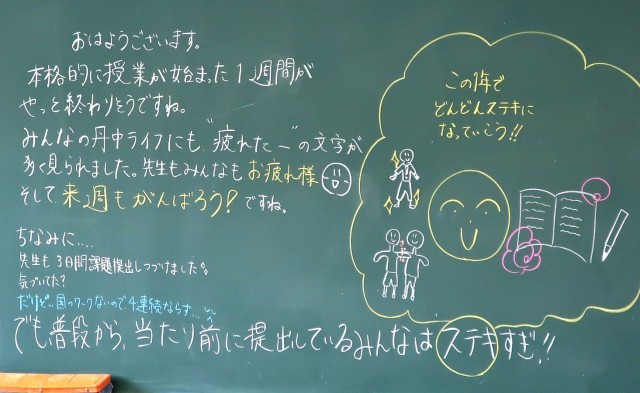 おはようございます。
本格的に授業が始まった1週間が
やっと終わりそうですね。
みんなの丹中ライフにも、"疲れたー"の文字が
多く見られました。先生もみんなもお疲れ様
そして、来週もがんばろう!ですね。
ちなみに....
先生も3日間課題提出しつづけました。
気づいてた?
だけど、国のワークないので、4連続ならず...
でも普段から、当たり前に提出しているみんなはステキすぎ!!
この1年で
どんどんステキに
なっていこう!!